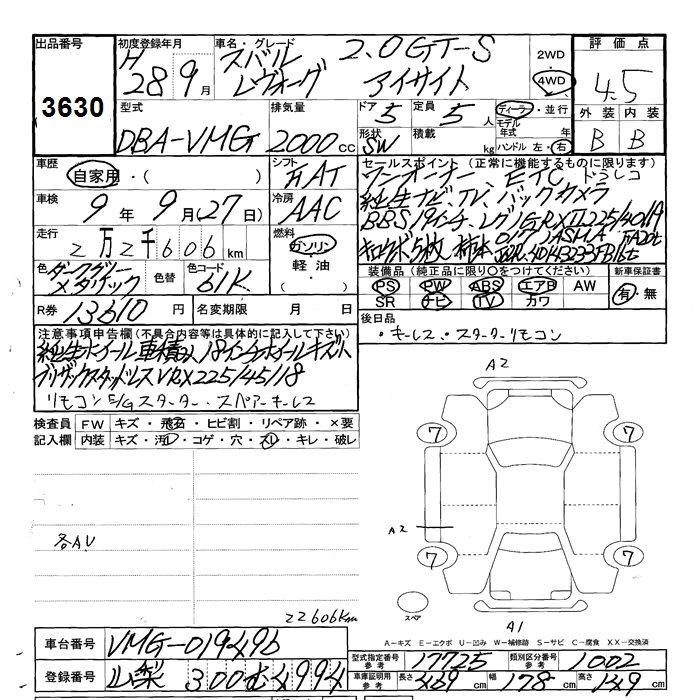 出品番号 3630
初度登録年月 H 28 9月
車名・グレード スバル レヴォーグ 2.0GT-S アイサイト
2WD
4WD
評価点 4.5
型式 DBA-VMG
排気量 2000 cc
ドア 5
定員 5人
ディーラー・並行
モデル年式 年
形状 SW
積載 kg
ハンドル 左・右
外装 内装
B B
車歴 自家用・( )
シフト AT
車検 9年 9月(27日)
冷房 AAC
走行 2万2千606km
燃料 ガソリン・軽油・( )
色 ダークグレーメタリック
色替
色コード 61K
R券 13610円
名変期限 月 日
セールスポイント(正常に機能するものに限ります)
ワンオーナー ETC ドラレコ
純生ナビ、TV、バックカメラ
BBS 19インチ
225/40/19
装備品(純正品に限り○をつけてください)
PS PW ABS エアB AW
SR ナビ TV カワ
新車保証書 有・無
後日品
・キーレス・スターターリモコン
注意事項申告欄(不具合内容等は具体的に記入して下さい)
純生ホイール車積込 18インチホイールキズ小
ブリザックスタッドレスVRX225/45/18
リモコンE/Gスターター・スペアーキーレス
検査員記入欄
FW キズ・飛石・ヒビ割・リペア跡・×要
内装 キズ・汚レ・コゲ・穴・スレ・キレ・破レ
各AU
22606km
A2
7 7
A2
7 7
スペア
A1
A-キズ E-エクボ U-凹み W-補修跡 S-サビ C-腐食 XX-交換済
車台番号 VMG-019496
登録番号 山梨 300 む 4994
型式指定番号 参考 17725
類別区分番号 参考 1002
車庫証明用 参考 長さ 469cm 幅 178cm 高さ 149cm